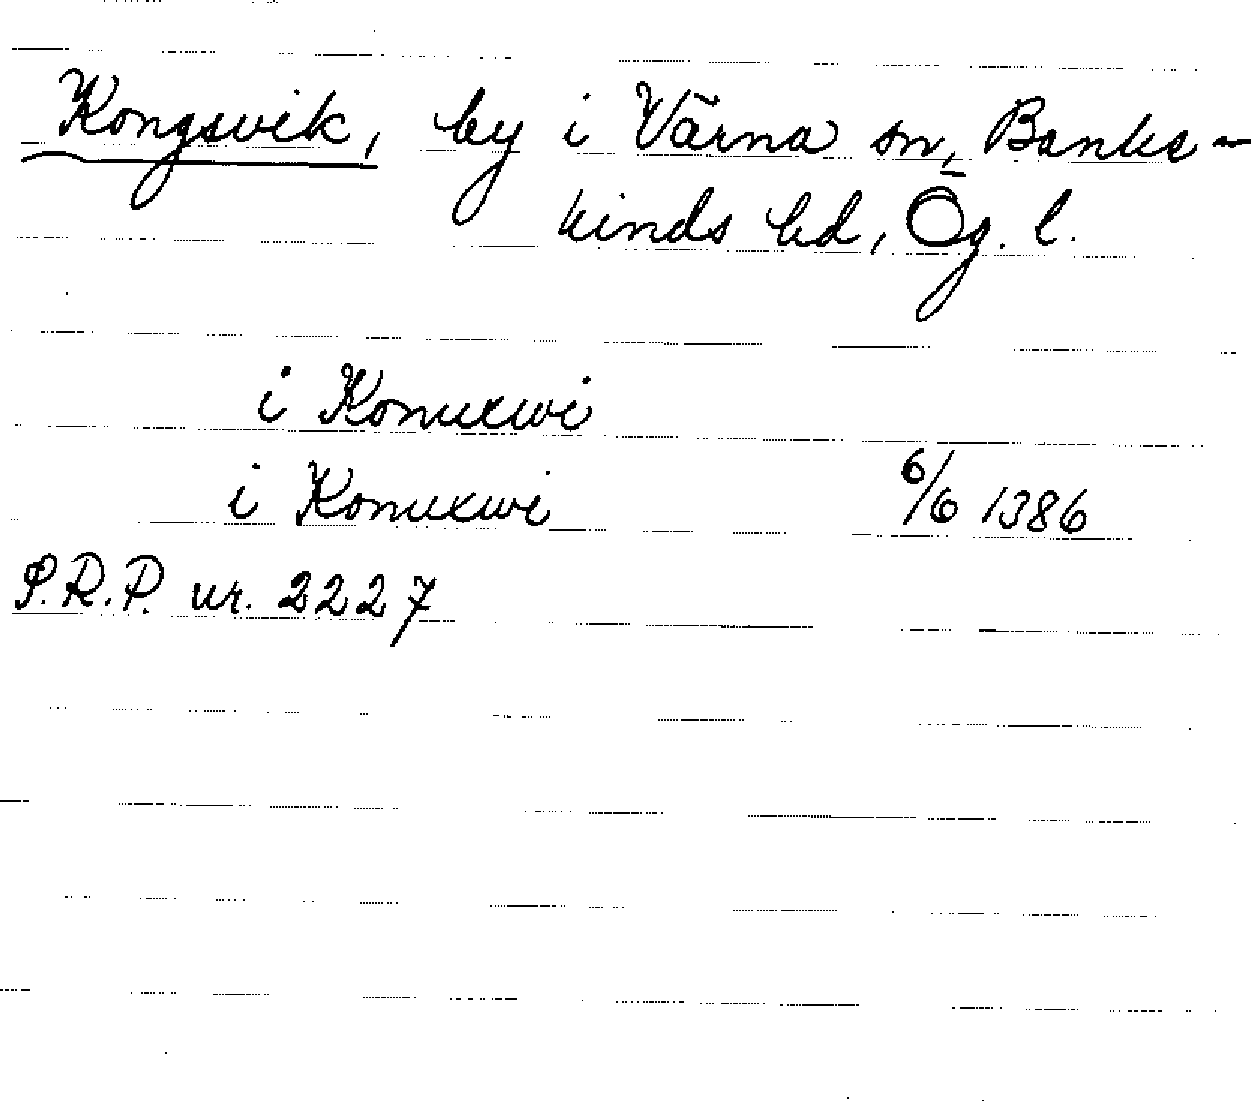 Kongsvik, by i Värna sn, Banks-
kinds hd, Ög. l.
i Konuxwi
i Konuxwi 6/6 1386
S.R.P. nr. 2227